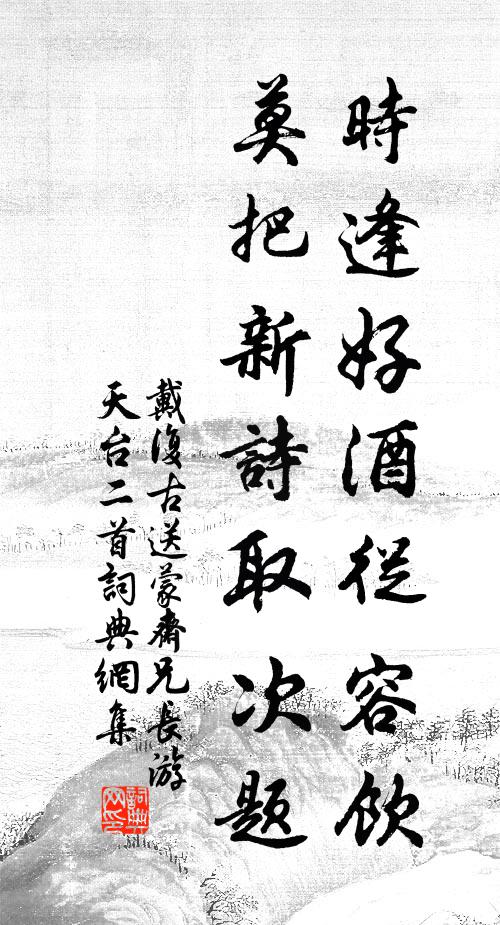 時逢好酒從容飲
莫把新詩取次題
戴復古送蒙齋兄長游
天台二首詞典網集